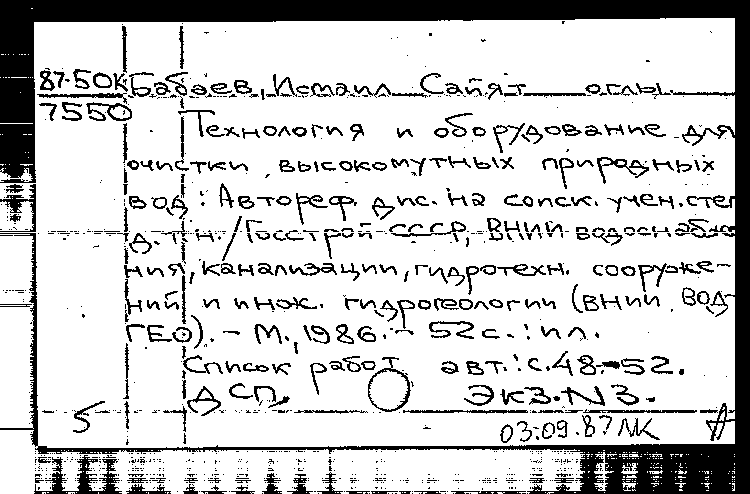 87-50К Бабаев, Исмаил Сайят оглы.
7550
Технология и оборудование для
очистки высокомутных природных
вод : Автореф. дис. на соиск. учен. степ
д.т.н. / Госстрой СССР, ВНИИ водоснабже
ния, канализации, гидротехн. сооруже-
ний и инж. гидрогеологии (ВНИИ ВОД-
ГЕО). - М., 1986. - 52 с. : ил.
Список работ авт.: с.48-52.
ДСП. Экз.N3.
5
03.09.87